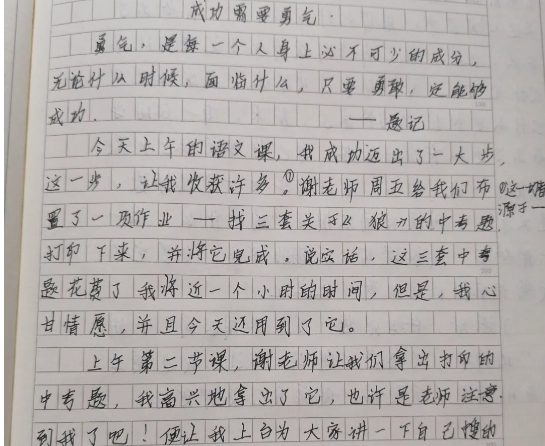 成功需要勇气.
勇气，是每一个人身上必不可少的成分，
无论什么时候，面临什么，只要勇敢，定能够
成功.
——题记
今天上午的语文课，我成功迈出了一大步，
这一步，让我收获许多。①谢老师周五给我们布 ①这一堵
置了一项作业——找三套关于《狼》的中考题， 源于一
打印下来，并将它完成。说实话，这三套中考
题花费了我将近一个小时的时间，但是，我心
甘情愿，并且今天还用到了它。
上午第二节课，谢老师让我们拿出打印的
中考题，我高兴地拿出了它，也许是老师注意
到我了吧！便让我上台为大家讲一下自己